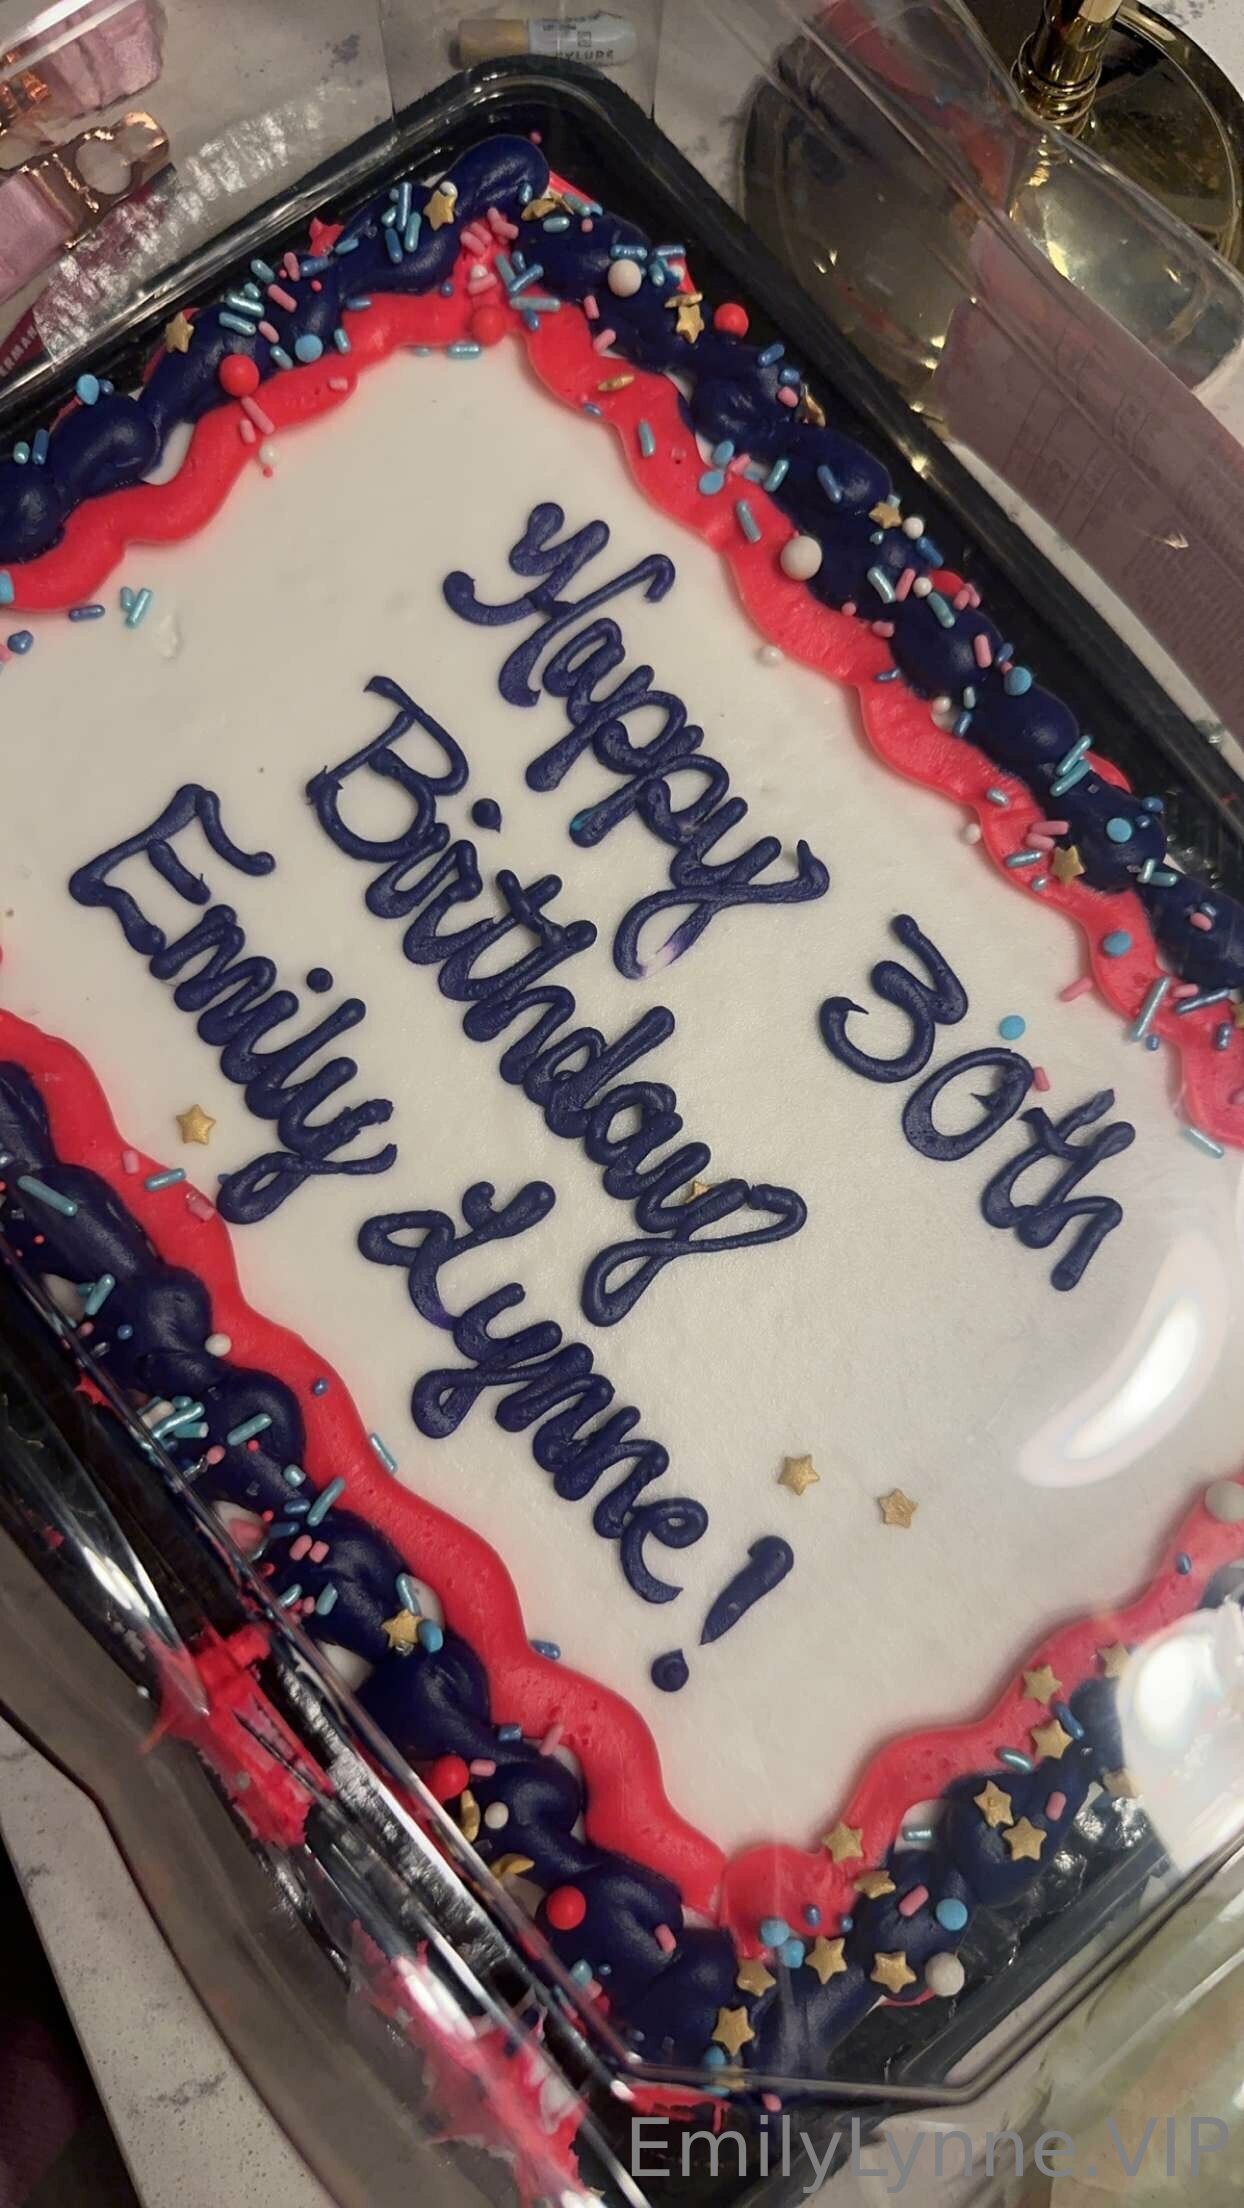 Happy 30th
Birthday
Emily Lynne!
EmilyLynne.VIP